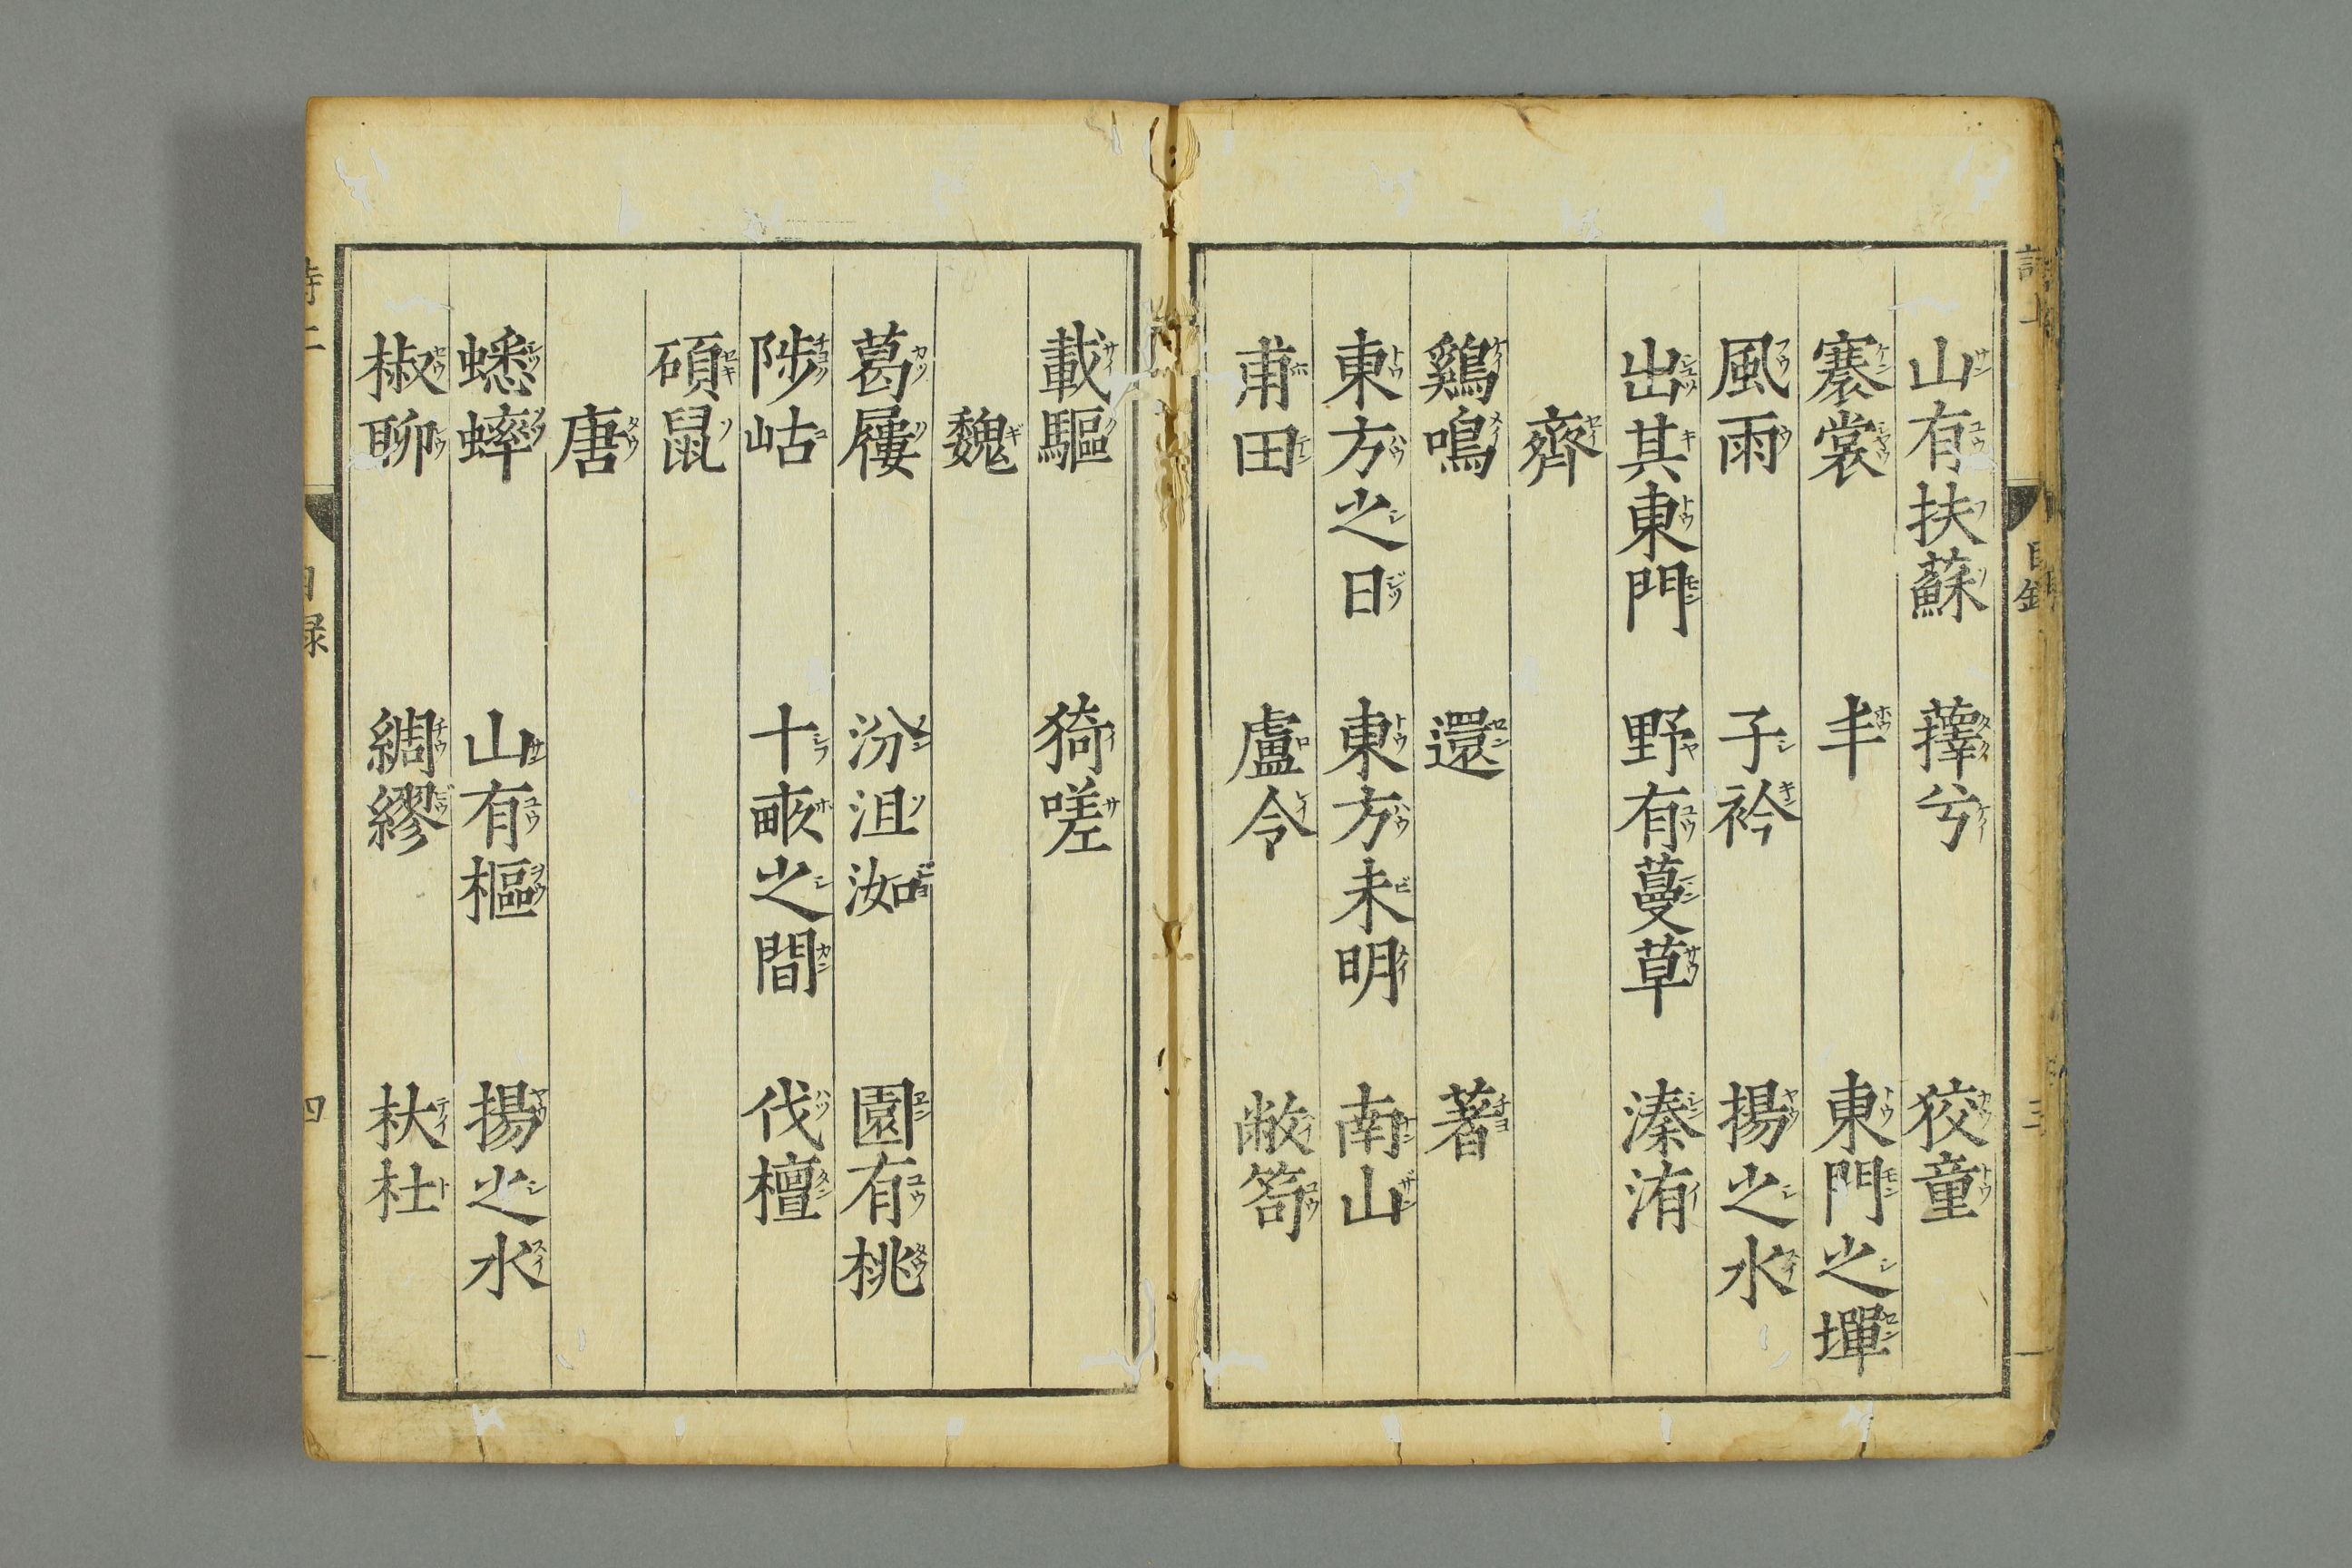 山有扶蘇 蘀兮 狡童
褰裳 丰 東門之墠
風雨 子衿 揚之水
出其東門 野有蔓草 溱洧
齊
鷄鳴 還 著
東方之日 東方未明 南山
甫田 盧令 敝笱
載驅 猗嗟
魏
葛屨 汾沮洳 園有桃
陟岵 十畝之間 伐檀
碩鼠
唐
蟋蟀 山有樞 揚之水
椒聊 綢繆 杕杜
目録 四